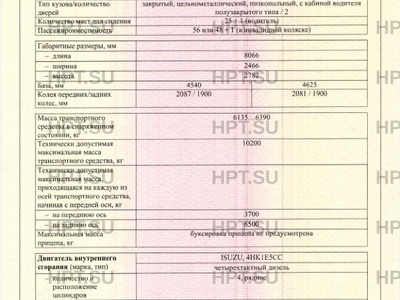 Тип кузова/количество дверей
закрытый, цельнометаллический, низкопольный, с кабиной водителя полузакрытого типа / 2
Количество мест для сидения 25 + 1 (водитель)
Пассажировместимость 56 или 48 + 1 (в инвалидной коляске)
Габаритные размеры, мм
– длина 8066
– ширина 2466
– высота 2782
База, мм 4540 4625
Колея передних/задних колес, мм 2087 / 1900 2081 / 1900
Масса транспортного средства в снаряженном состоянии, кг 6135…6390
Технически допустимая максимальная масса транспортного средства, кг 10200
Технически допустимая максимальная масса, приходящаяся на каждую из осей транспортного средства, начиная с передней оси, кг
– на переднюю ось 3700
– на заднюю ось 6500
Максимальная масса прицепа, кг буксировка прицепа не предусмотрена
Двигатель внутреннего сгорания (марка, тип) ISUZU, 4HK1E5CC
четырехтактный дизель
– количество и расположение цилиндров 4, рядное
HPT.SU